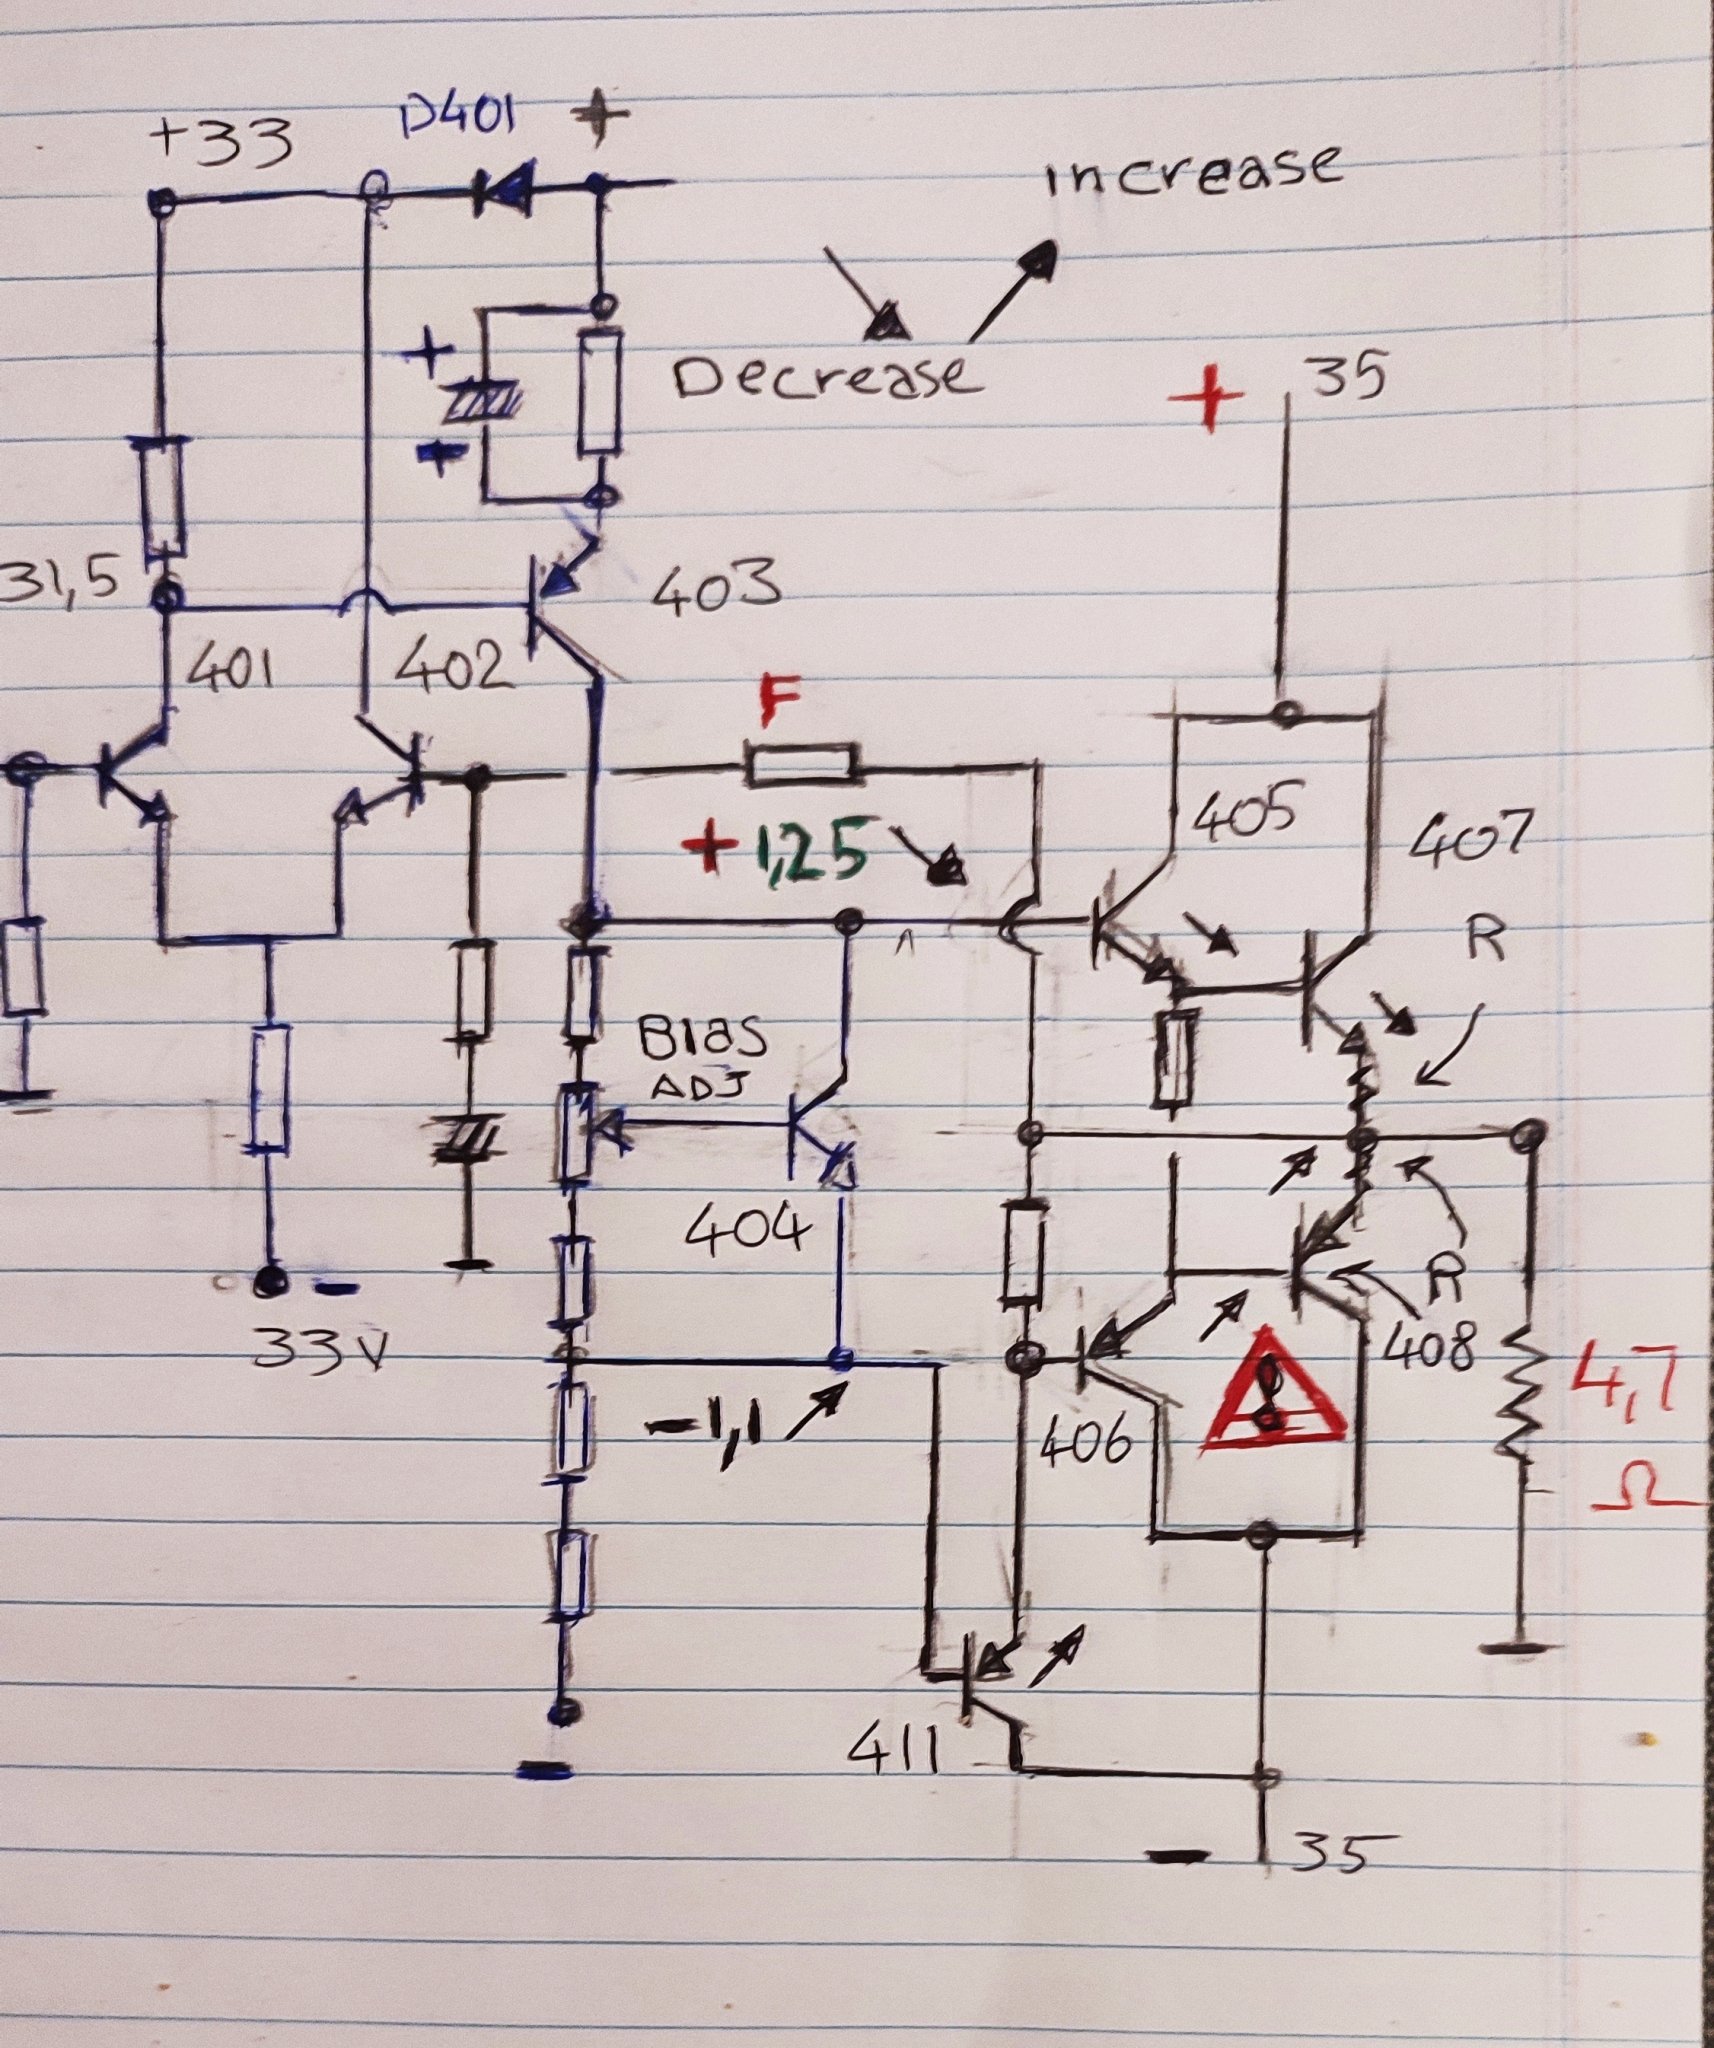 D401 +
+33
increase
+
Decrease
+ 35
-
31,5
403
401 402
F
405
+1,25
407
R
Bias
ADJ
404
R
-
33V
408
4,7
-1,1
406
!
Ω
411
-
- 35